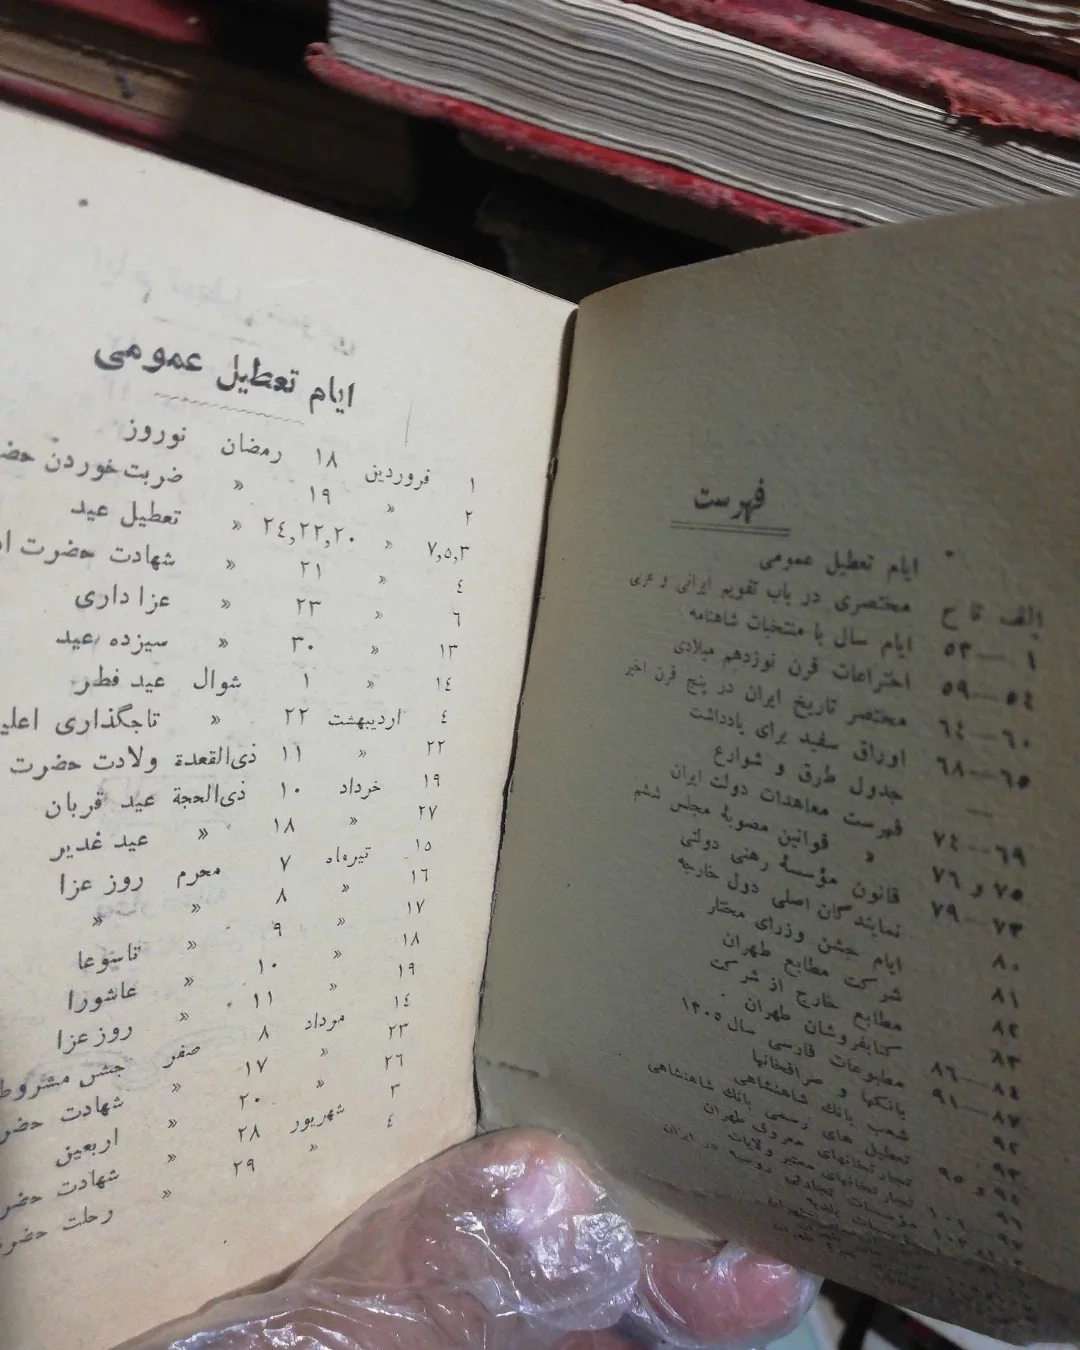 فهرست
ایام تعطیل عمومی
الف تا ح مختصری در باب تقویم ایرانی و عربی
۱ — ۵۳ ایام سال با منتخبات شاهنامه
۵٤—۵۹ اختراعات قرن نوزدهم میلادی
۶۰—۶٤ مختصر تاریخ ایران در پنج قرن اخیر
۶۵—۶۸ اوراق سفید برای یادداشت
— جدول طرق و شوارع
۶۹—۷٤ فهرست معاهدات دولت ایران
۷۵ و ۷۶ » قوانین مصوبهٔ مجلس ششم
۷۳—۷۹ قانون مؤسسهٔ رهنی دولتی
۸۰ نمایندگان اصلی دول خارجه
۸۱ ایام جشن وزرای مختار
۸۲ شرکت مطابع طهران
۸۳ مطابع خارج از شرکت
۸٤—۸۶ کتابفروشان طهران
۸۷—۹۱ مطبوعات فارسی سال ۱۳۰۵
۹۲ بانکها و صرافخانها
۹۳ شعب بانك شاهنشاهی
۹٤ و ۹۵ تعطیل های رسمی بانك شاهنشاهی
۹۶ تجارتخانهای معروف طهران
تجارتخانهای معتبر ولایات
مؤسسات تجارتی روسیه در ایران
ایام تعطیل عمومی
۱ فروردین ۱۸ رمضان نوروز
۲ » ۱۹ » ضربت خوردن
۷,۵,۳ » ۲٤,۲۲,۲۰ » تعطیل عید
٤ » ۲۱ » شهادت حضرت
۶ » ۲۳ » عزاداری
۱۳ » ۳۰ » سیزده عید
۱٤ » ۱ شوال عید فطر
٤ اردیبهشت ۲۲ » تاجگذاری
۲۲ » ۱۱ ذی‌القعدة ولادت حضرت
۱۹ خرداد ۱۰ ذی‌الحجة عید قربان
۲۷ » ۱۸ » عید غدیر
۱۵ تیرماه ۷ محرم روز عزا
۱۶ » ۸ » »
۱۷ » ۹ » تاسوعا
۱۸ » ۱۰ » عاشورا
۱۹ » ۱۱ » روز عزا
۱٤ مرداد ۸ صفر جشن
۲۳ » ۱۷ » شهادت
۲۶ » ۲۰ » اربعین
۳ شهریور ۲۸ » شهادت
٤ » ۲۹ » رحلت